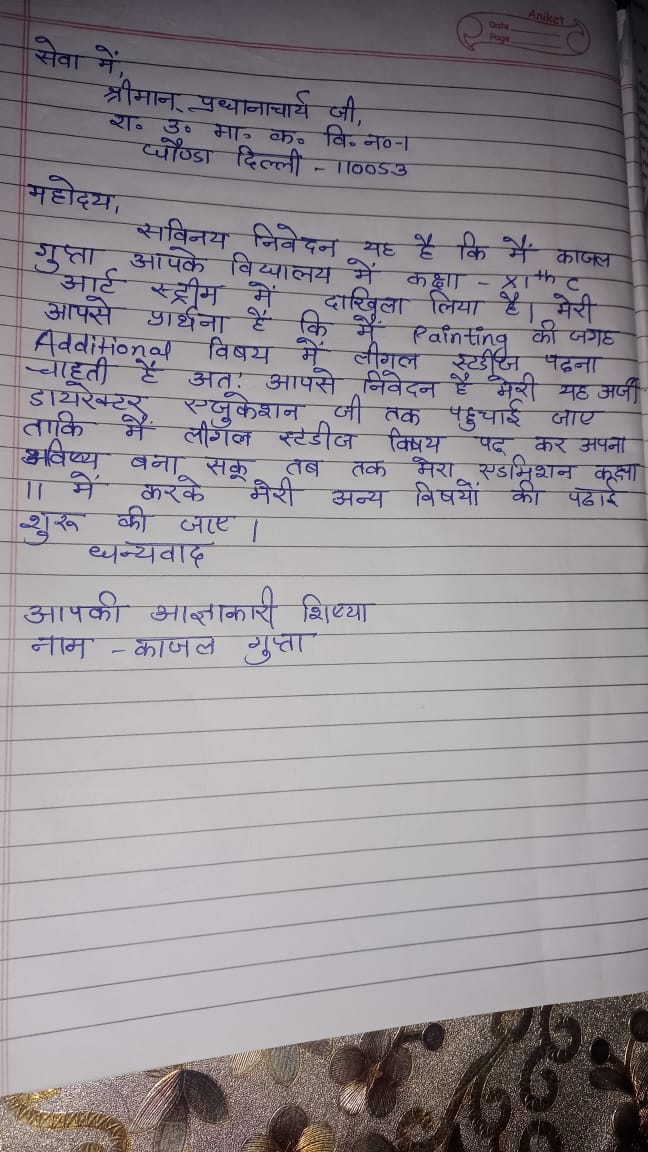 Aniket
Date
Page
सेवा में,
श्रीमान् प्रधानाचार्य जी,
रा. उ. मा. क. वि. न०-1
घौण्डा दिल्ली - 110053
महोदय,
सविनय निवेदन यह है कि मैं काजल
गुप्ता आपके विद्यालय में कक्षा - XIth C
आर्ट स्ट्रीम में दाखिला लिया है। मेरी
आपसे प्रार्थना हैं कि मैं Painting की जगह
Additional विषय में लीगल स्टडीज पढना
चाहती हैं अतः आपसे निवेदन है मेरी यह अर्जी
डायरेक्टर एजुकेशन जी तक पहुचाई जाए
ताकि मैं लीगल स्टडीज विषय पढ कर अपना
भविष्य बना सकू तब तक मेरा एडमिशन कक्षा
11 में करके मेरी अन्य विषयों की पढाई
शुरू की जाए।
धन्यवाद
आपकी आज्ञाकारी शिष्या
नाम - काजल गुप्ता